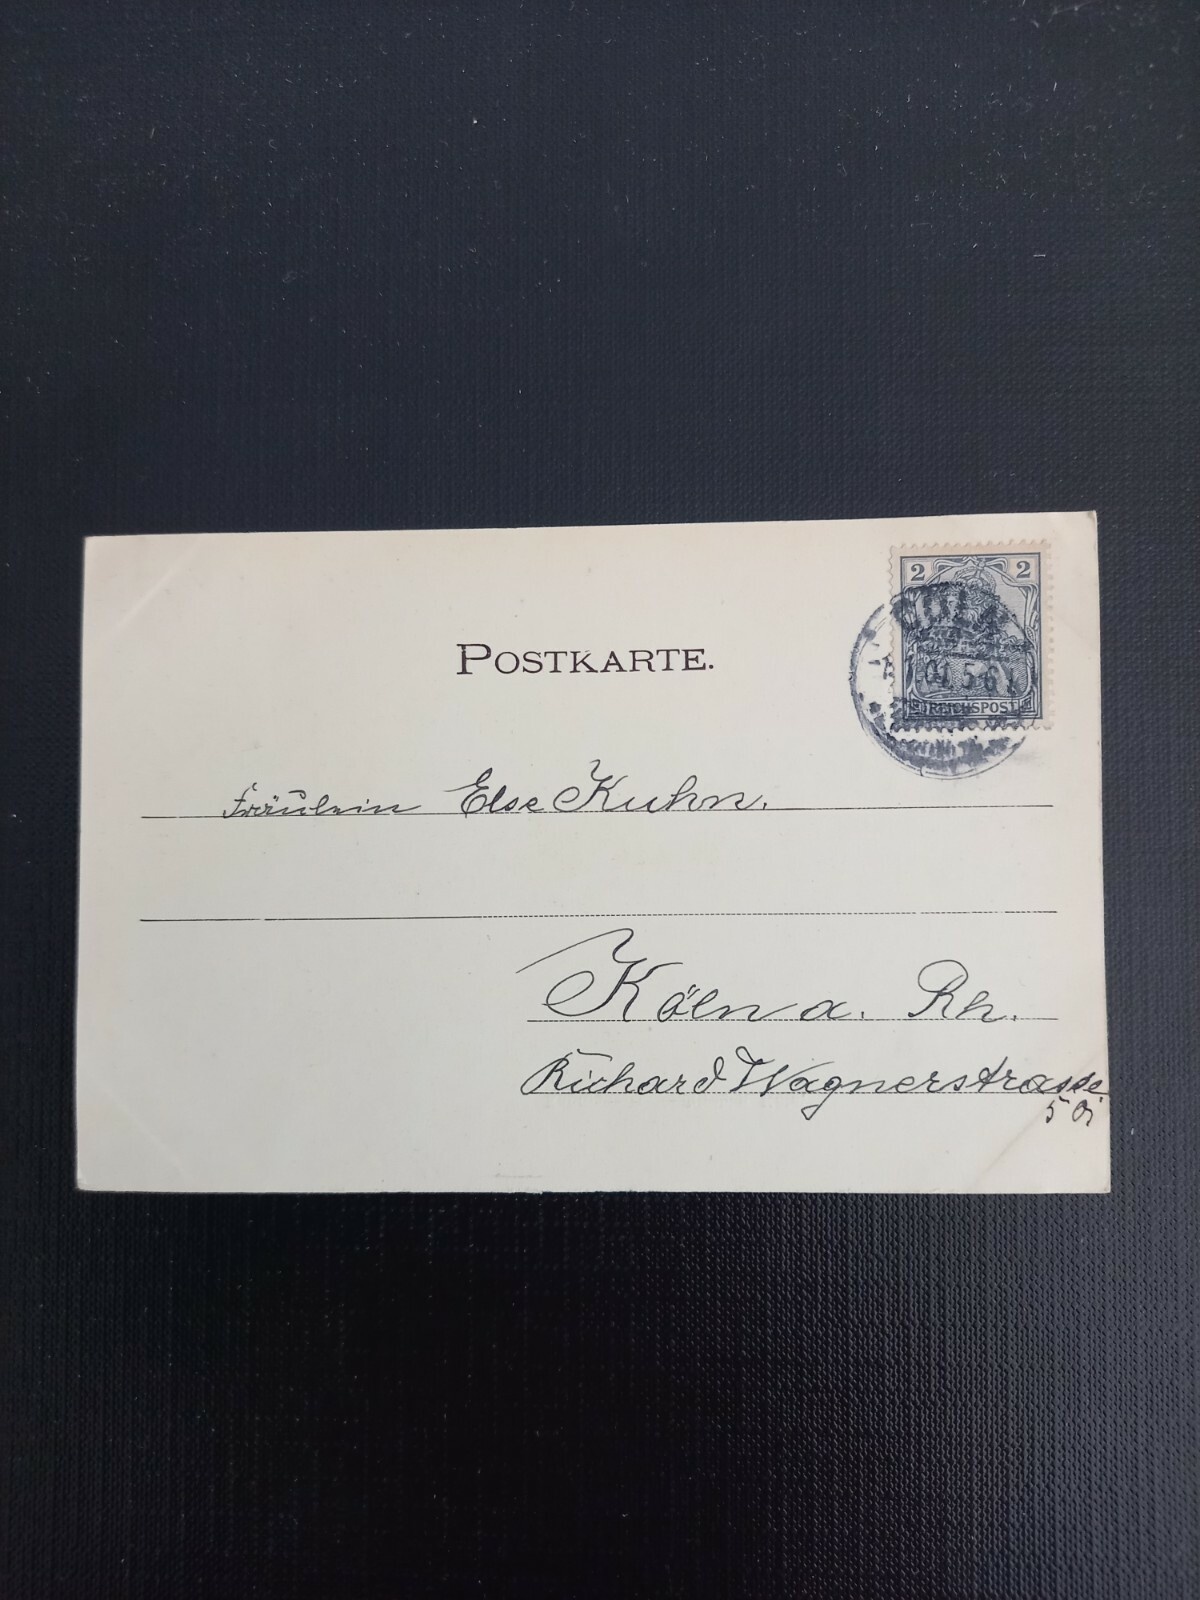 POSTKARTE.
2 2
CÖLN
1.01.5-6
REICHSPOST
Fräulein Else Kuhn.
Köln a. Rh.
Richard Wagnerstrasse
5